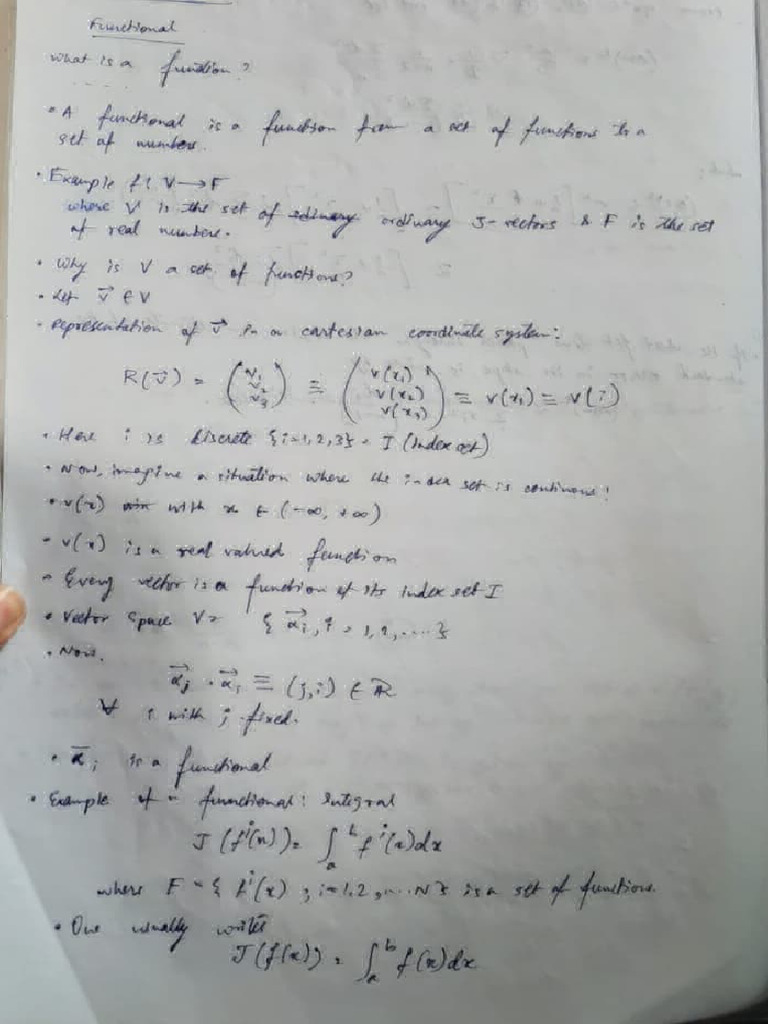 Functional
What is a function?
• A functional is a function from a set of functions to a
set of numbers.
• Example f: V → F
where V is the set of ordinary 3-vectors & F is the set
of real numbers.
• Why is V a set of functions?
• Let v⃗ ∈ V
• Representation of v⃗ in a cartesian coordinate system:
R(v⃗) = (v₁ v₂ v₃) ≡ (v(x₁) v(x₂) v(x₃)) ≡ v(xᵢ) ≡ v(i)
• Here i is discrete {i=1,2,3} = I (index set)
• Now, imagine a situation where the index set is continuous!
• v(x) with x ∈ (-∞, +∞)
• v(x) is a real valued function
• Every vector is a function of its index set I
• Vector space V = {α⃗ᵢ, i = 1,2,....}
• Now,
α⃗ⱼ · α⃗ᵢ ≡ (j,i) ∈ R
∀ i with j fixed.
• α⃗ⱼ is a functional
• Example of a functional: Integral
J(fⁱ(x)) = ∫ₐᵇ fⁱ(x)dx
where F = {fⁱ(x), i=1,2,...N} is a set of functions.
• One usually writes
J(f(x)) = ∫ₐᵇ f(x)dx